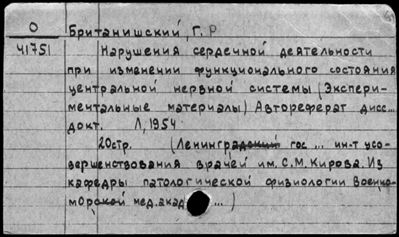 О Британишский, Г. Р
41751 Нарушения сердечной деятельности
при изменении функционального состояния
центральной нервной системы (Экспери-
ментальные материалы) Автореферат дисс...
докт. Л, 1954
20стр. (Ленинградский гос ... ин-т усо-
вершенствования врачей им. С.М.Кирова. Из
кафедры патологической физиологии Военно-
морской мед. акад ...)